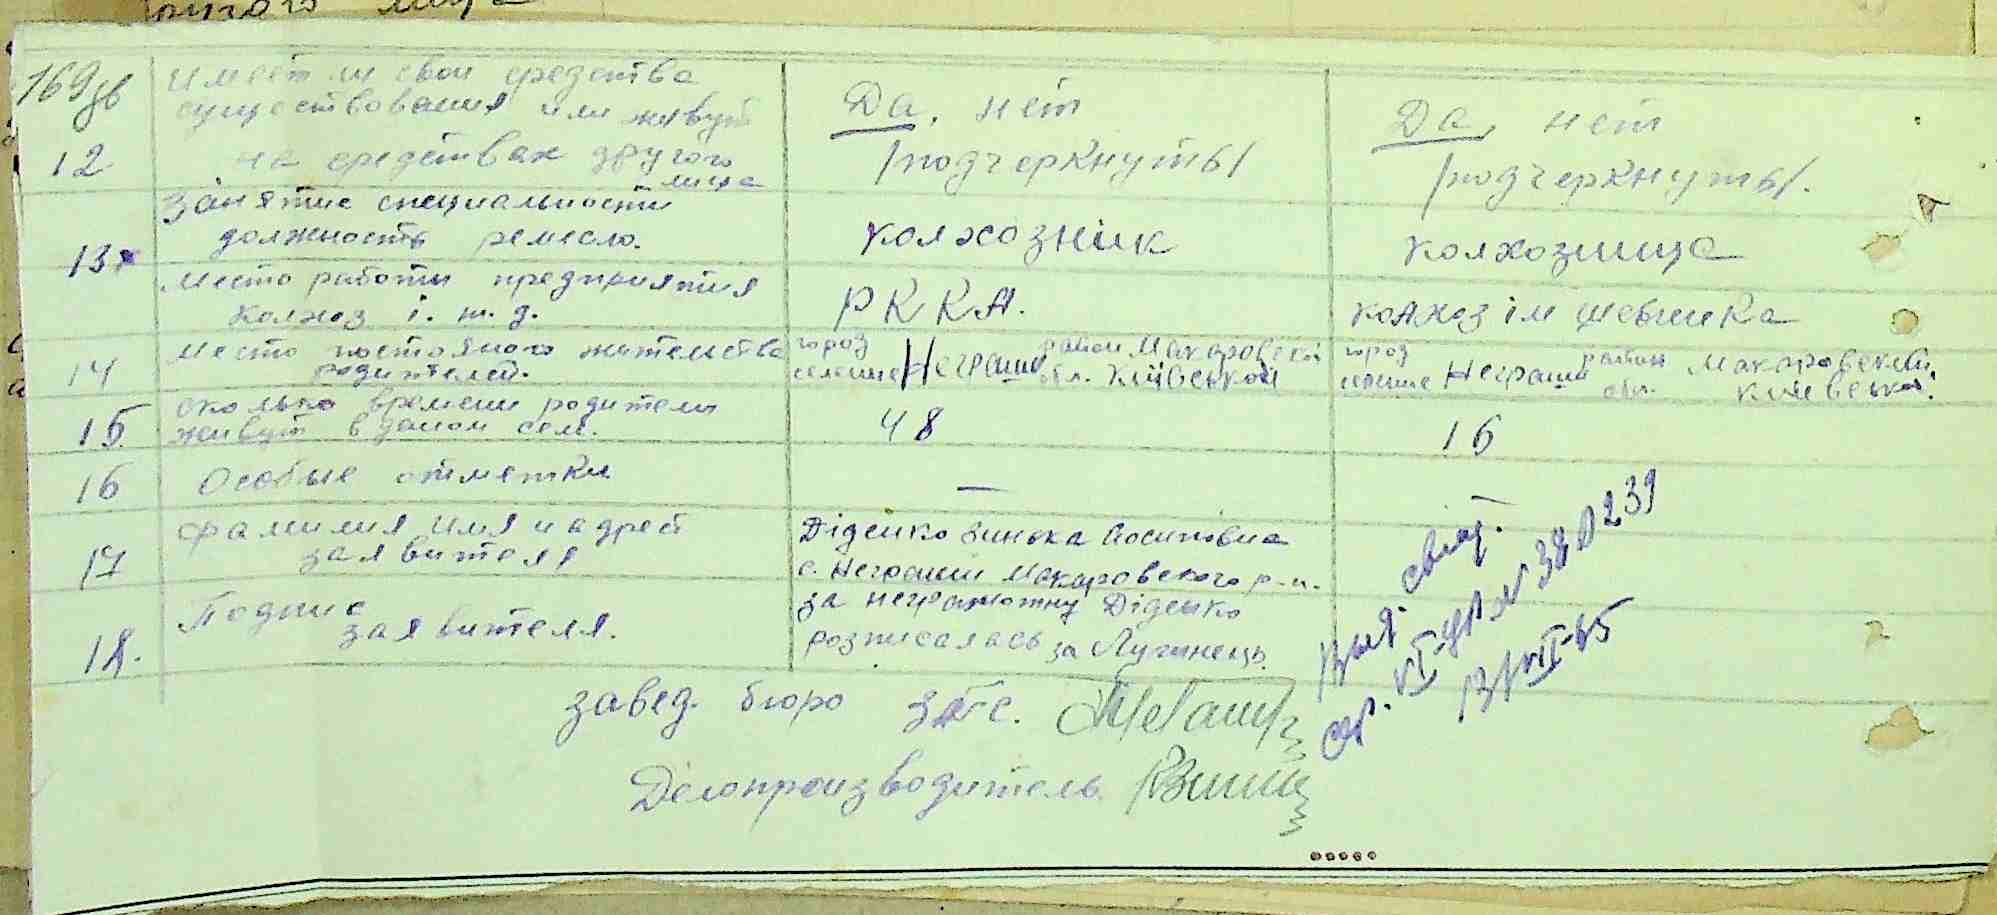 другого лица
169зв
имеет ли свои средства
существования или живут
12 на средствах другого
лица
Да, нет
/подчеркнуть/
Да, нет
/подчеркнуть/.
Занятие специальности
13. должность ремесло.
колхознік
колхозница
Место работы предприятия
колхоз і. т. д.
РККА.
колхоз ім Шевченка
14 Место постояного жительства
родителей.
город
селение Неграши район Макаровской
обл. Київськой
город
селение Неграши район Макаровский
обл. Київськой.
15. сколько времени родители
живут в даном сел.
48
16
16 Особые отметки
—
—
17 Фамилия имя и адрес
заявителя
Діденко Зинька Йосиповна
с. Неграши Макаровского р-н.
18. Подпис
заявителя.
за неграмотну Діденко
розписалась за Лучинець.
завед. бюро загс.
Делопроизводитель
выд. свид.
сер. VI-УР № 380239